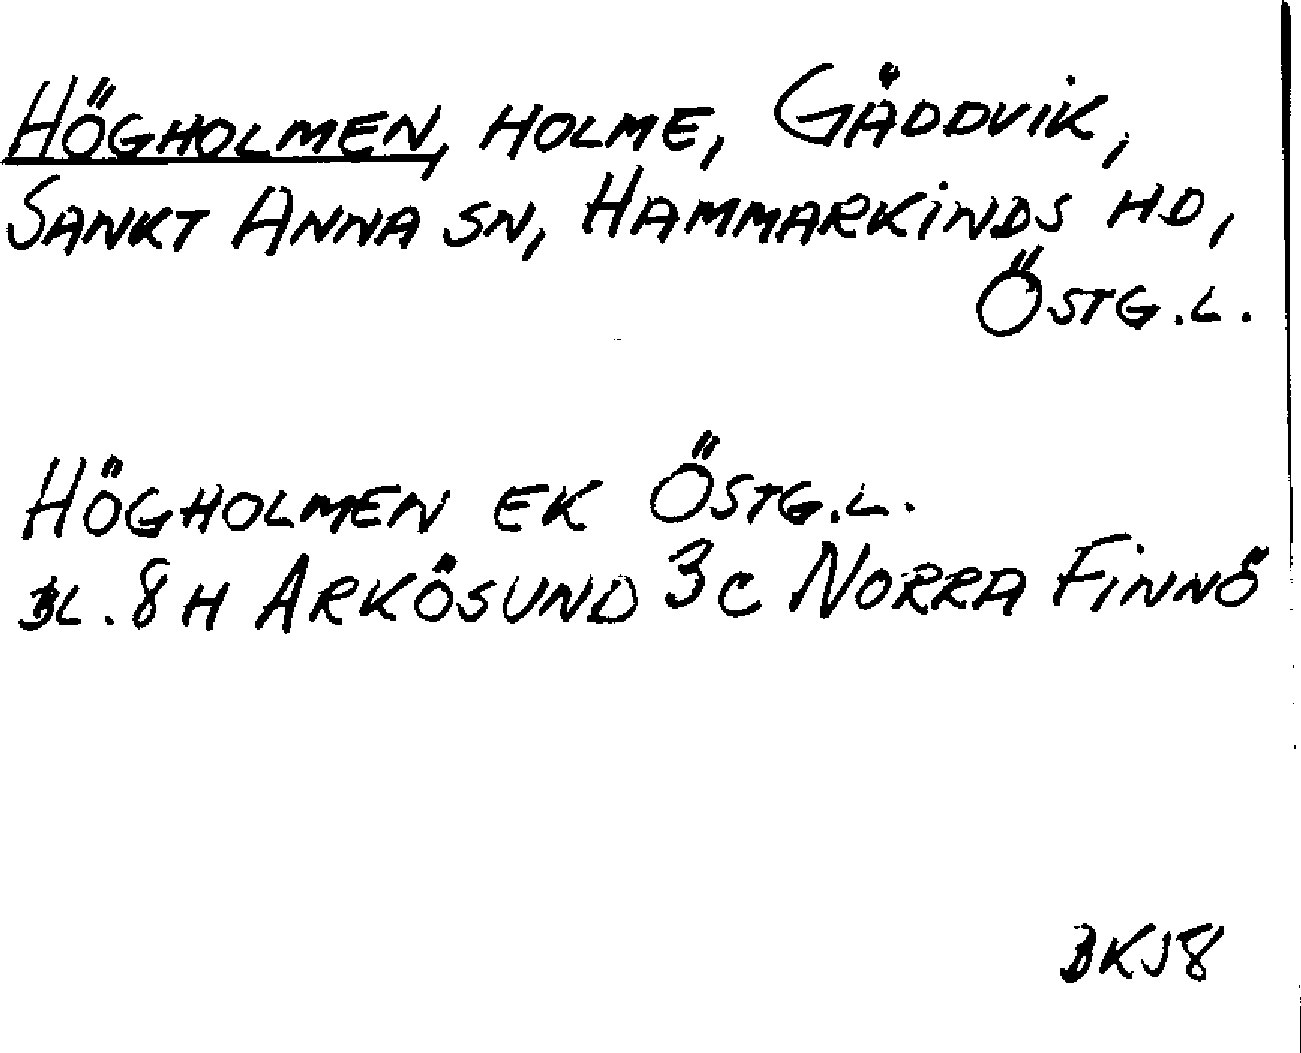 HÖGHOLMEN, HOLME, GÄDDVIK,
SANKT ANNA SN, HAMMARKINDS HD,
ÖSTG.L.
HÖGHOLMEN EK ÖSTG.L.
BL. 8H ARKÖSUND 3C NORRA FINNÖ
BKJ8